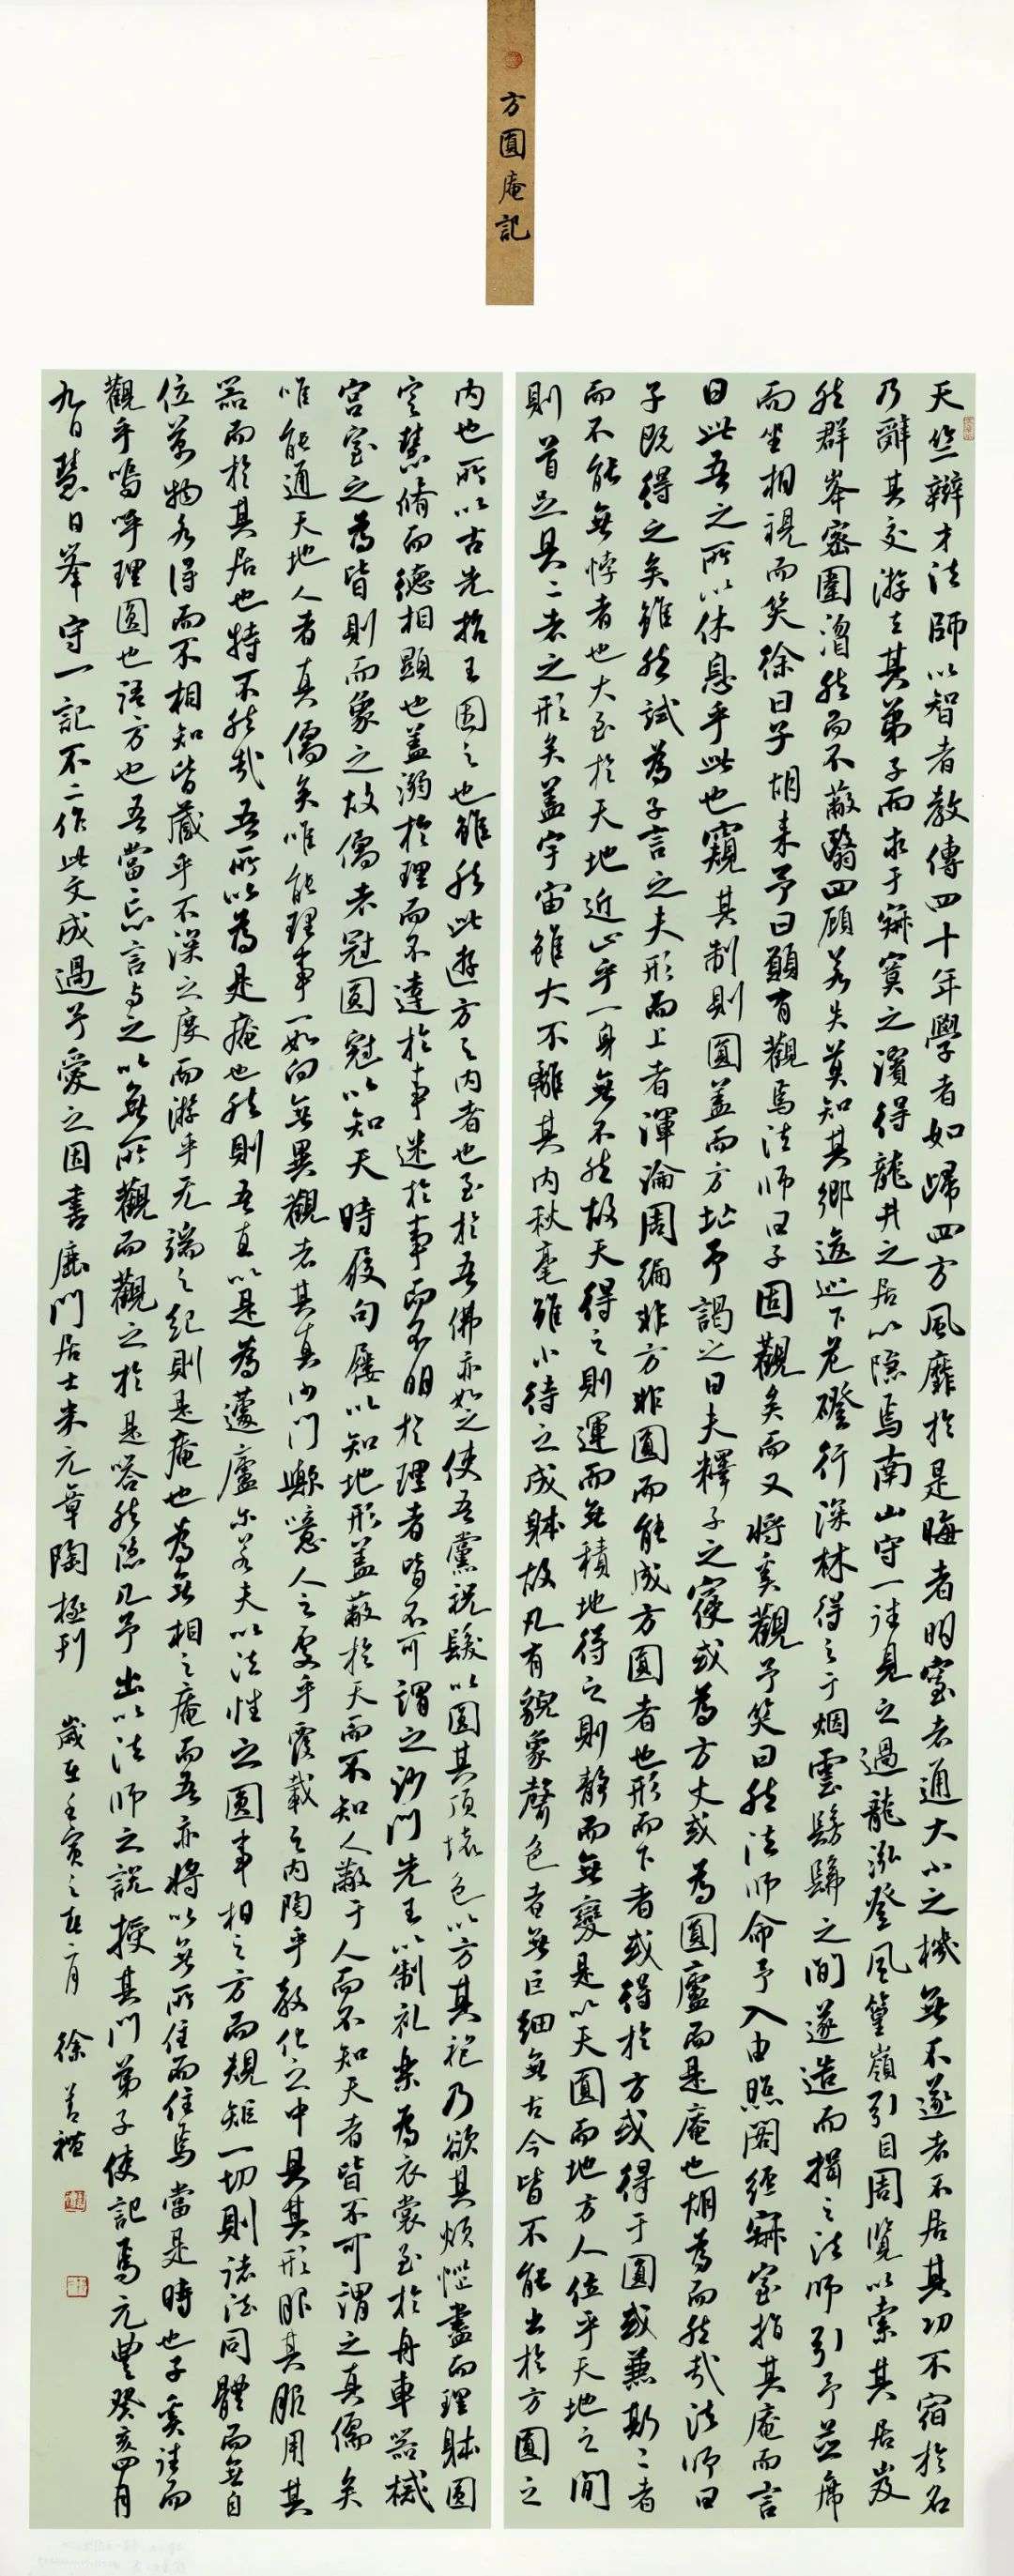 方圓庵記
天竺辯才法師以智者教傳四十年學者如歸四方風靡於是晦者明窒者通大小之機無不遂者不居其功不宿於名
乃辭其交游去其弟子而求于寂寞之濱得龍井之居以隱焉南山守一往見之過龍泓登風篁嶺引目周覽以索其居岌
然群峯密圍溜然而不蔽翳四顧若失莫知其鄉逡巡下危磴行深林得之于烟雲髣髴之間遂造而揖之法師引予並席
而坐相視而笑徐曰子胡来予曰願有觀焉法師曰子固觀矣而又將奚觀予笑曰然法師命予入由照閣經寂室指其庵而言
曰此吾之所以休息乎此也窺其制則圓蓋而方址予謁之曰夫釋子之寢或為方丈或為圓廬而是庵也胡為而然哉法師曰
子既得之矣雖然試為子言之夫形而上者渾淪周徧非方非圓而能成方圓者也形而下者或得於方或得于圓或兼斯二者
而不能無悖者也大至於天地近止乎一身無不然故天得之則運而無積地得之則靜而無變是以天圓而地方人位乎天地之間
則首足具二者之形矣蓋宇宙雖大不離其内秋毫雖小待之成體故凡有貌象聲色者無巨細無古今皆不能出於方圓之
内也所以古先哲王因之也雖然此遊方之内者也至於吾佛亦如之使吾黨祝髮以圓其頂壞色以方其袍乃欲其煩惱盡而理體圓
定慧脩而德相顯也蓋溺於理而不達於事迷於事而不明於理者皆不可謂之沙門先王以制礼樂為衣裳至於舟車器械
宫室之為皆則而象之故儒者冠圓冠以知天時履句屨以知地形蓋蔽於天而不知人蔽于人而不知天者皆不可謂之真儒矣
唯能通天地人者真儒矣唯能理事一如向無異觀者其真沙門歟噫人之處乎覆載之内陶乎教化之中具其形服其服用其
器而於其居也特不然哉吾所以為是庵也然則吾直以是為蘧廬尔若夫以法性之圓事相之方而規矩一切則諸法同體而無自
位萬物各得而不相知皆藏乎不深之度而游乎无端之紀則是庵也為無相之庵而吾亦將以無所住而住焉當是時也子奚往而
觀乎嗚呼理圓也語方也吾當忘言与之以無所觀而觀之於是嗒然隱几予出以法師之說授其門弟子使記焉元豐癸亥四月
九日慧日峯守一記不二作此文成過予愛之因書鹿門居士米元章陶拯刊 歲在壬寅之春二月 徐善禮